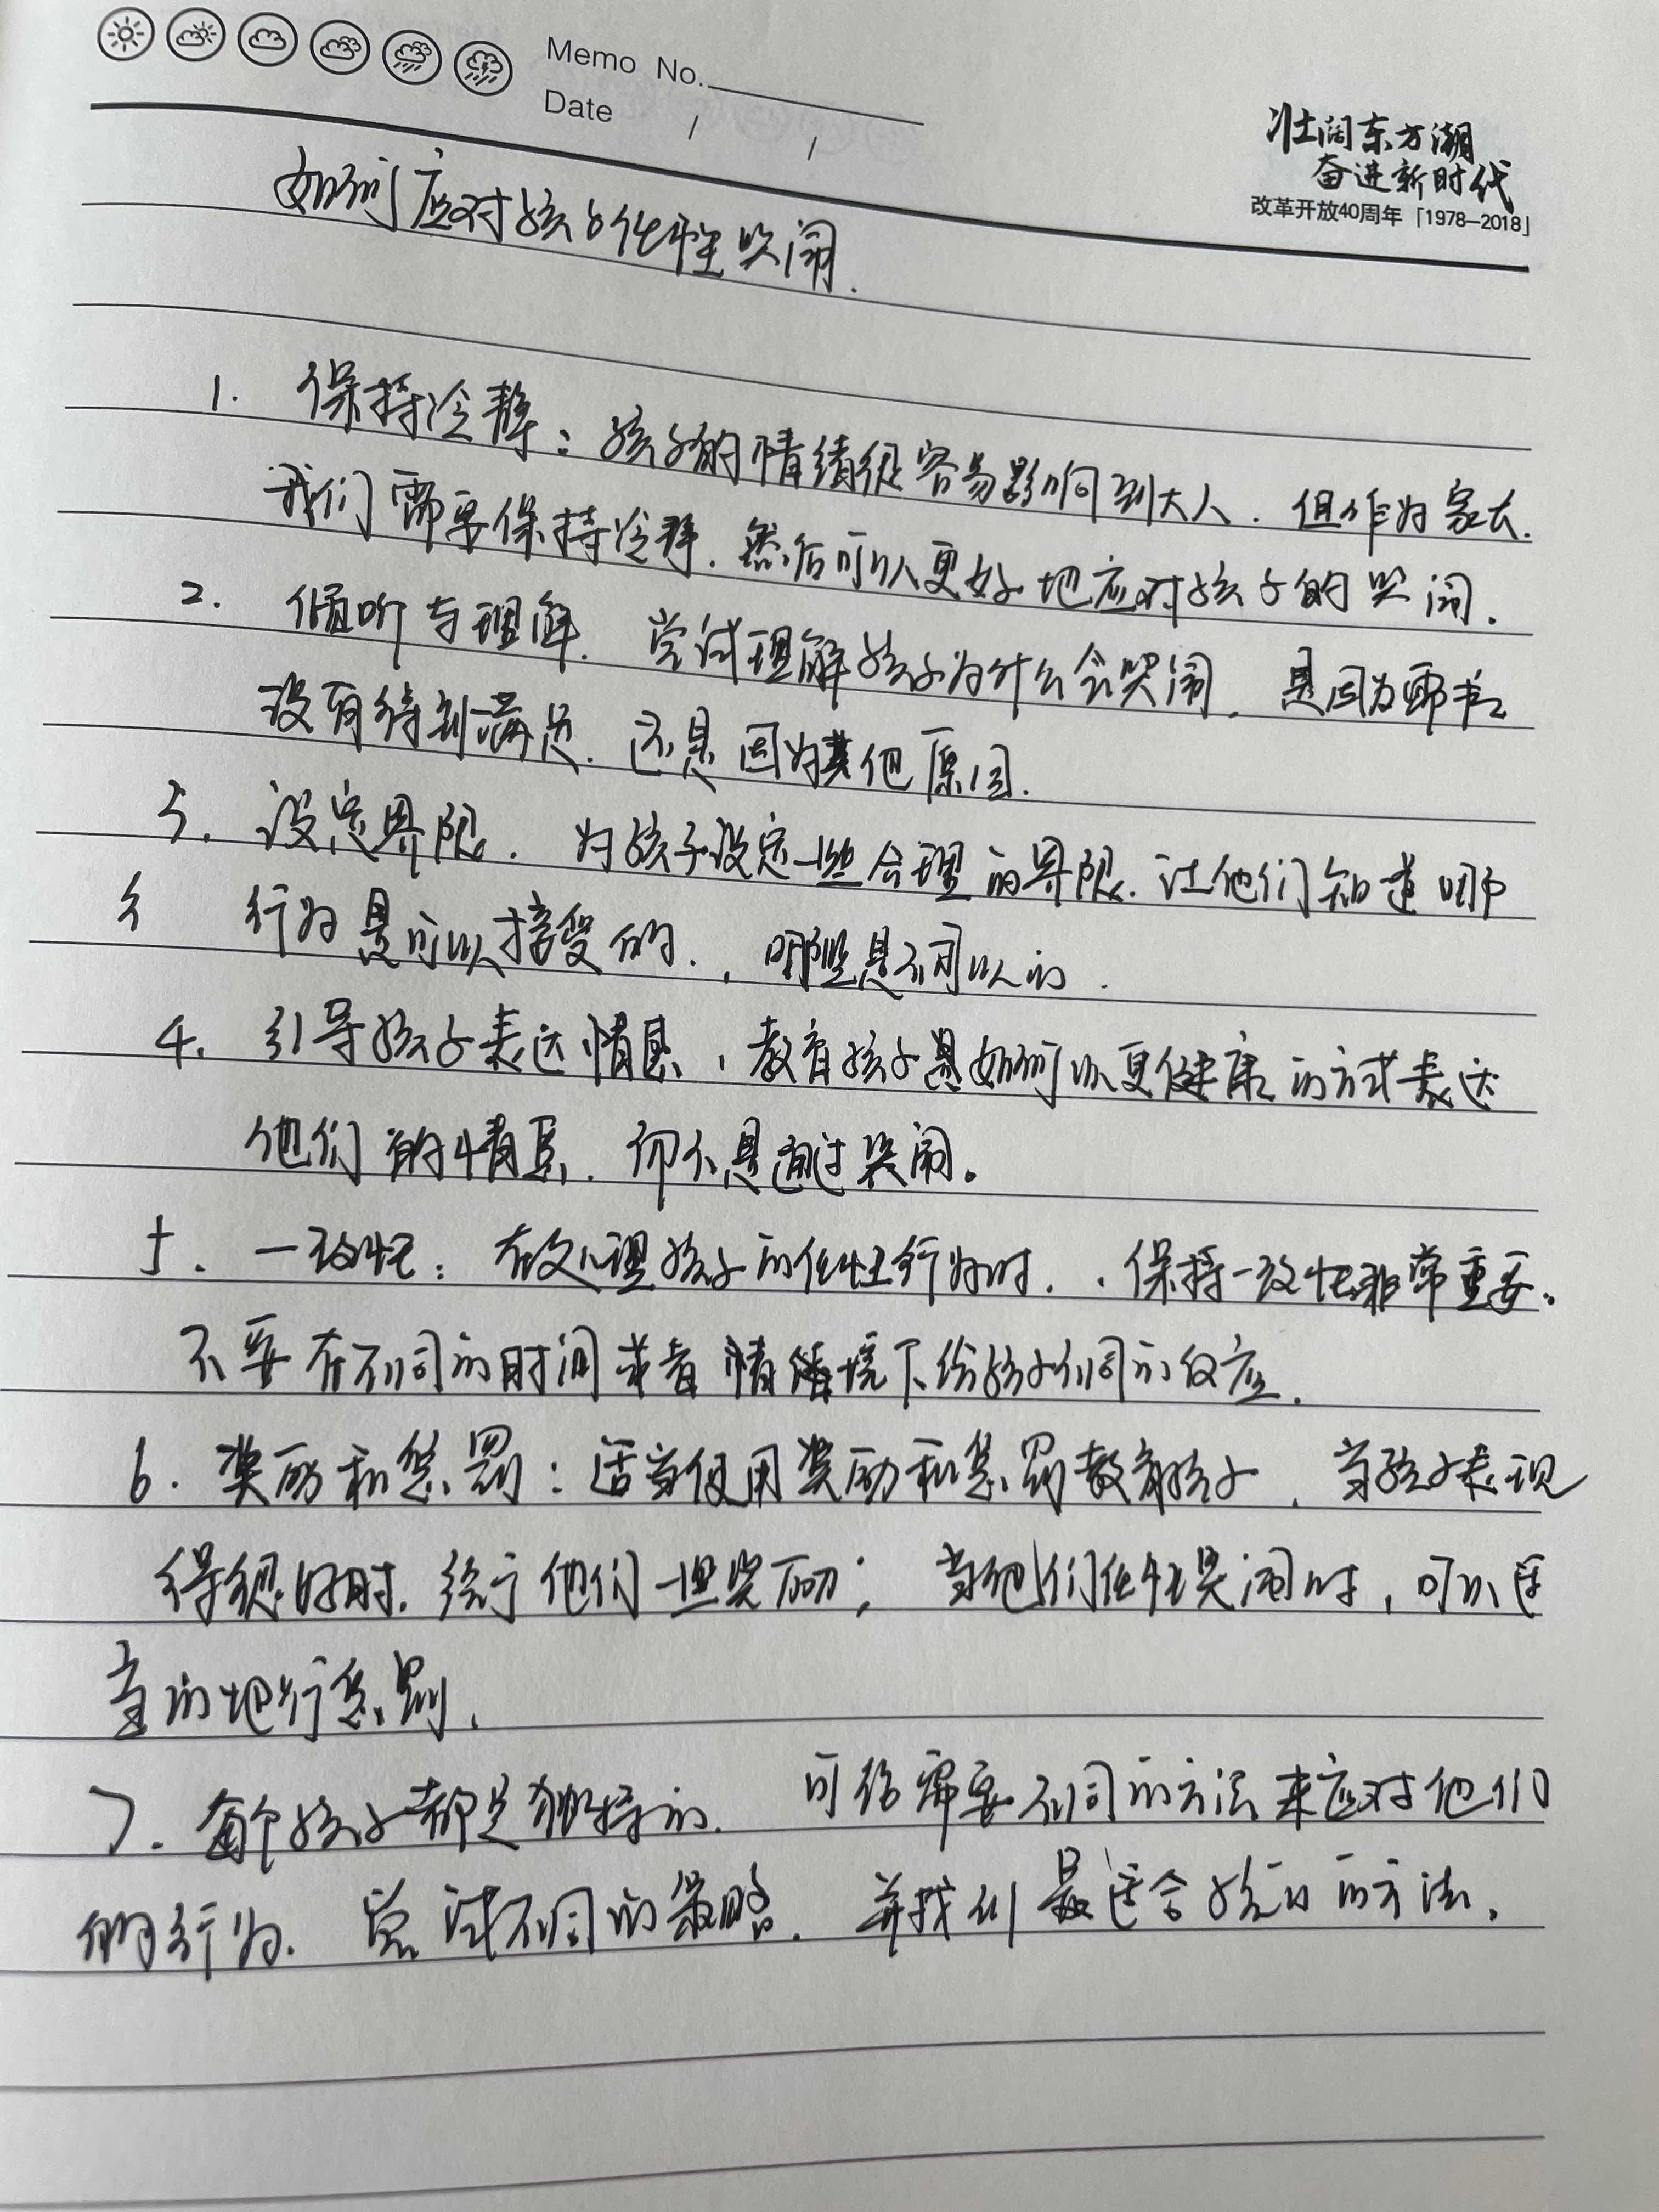 Memo No.
Date / /
壮阔东方潮
奋进新时代
改革开放40周年「1978-2018」
如何应对孩子任性哭闹.
1. 保持冷静：孩子的情绪很容易影响到大人. 但作为家长.
我们需要保持冷静. 然后可以更好地应对孩子的哭闹.
2. 倾听与理解. 尝试理解孩子为什么会哭闹, 是因为需求
没有得到满足. 还是因为其他原因.
3. 设定界限. 为孩子设定一些合理的界限. 让他们知道哪
行为是可以接受的., 哪些是不可以的.
4. 引导孩子表达情感, 教育孩子是如何以更健康的方式表达
他们的情感. 而不是通过哭闹。
5. 一致性：在处理孩子的任性行为时., 保持一致性非常重要。
不要在不同的时间或者情境下给孩子不同的反应.
6. 奖励和惩罚：适当使用奖励和惩罚教育孩子, 当孩子表现
得很好时. 给予他们一些奖励; 当他们任性哭闹时, 可以适
当的地行惩罚.
7. 每个孩子都是独特的. 可能需要不同的方法来应对他们
的行为. 尝试不同的策略. 并找到最适合孩子的方法.